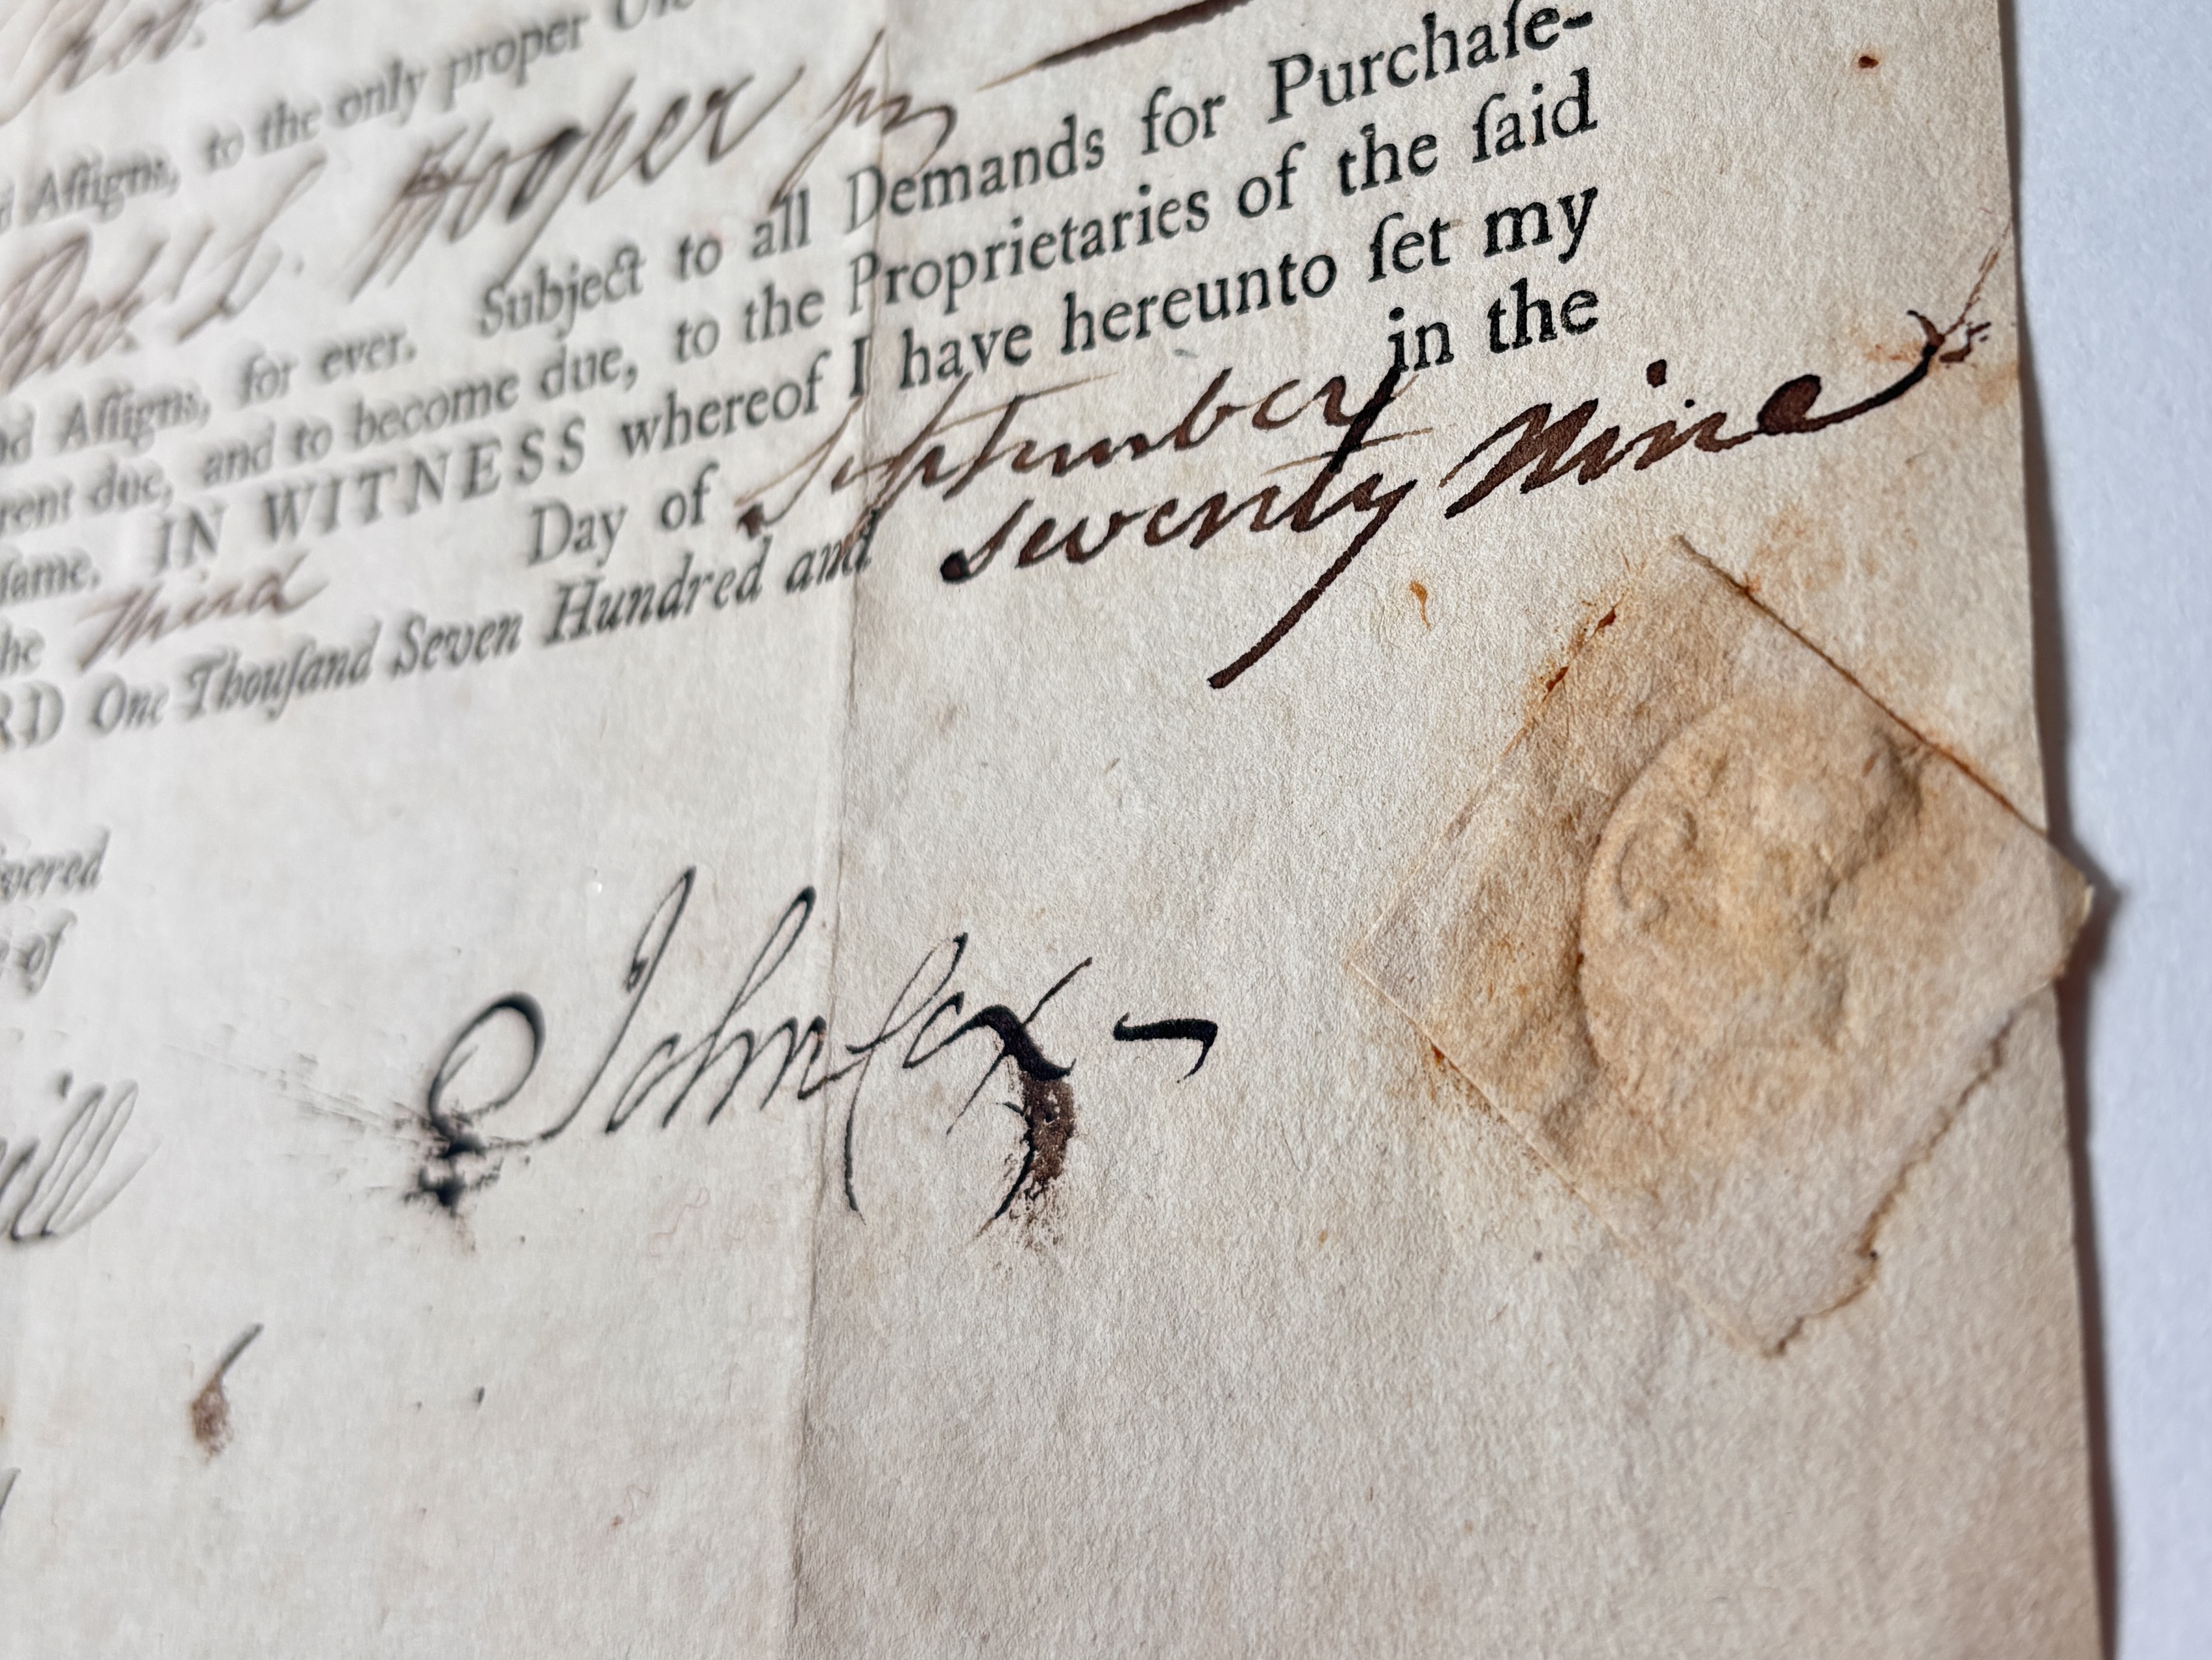 Aſſigns, to the only proper
Robt. L. Hooper jnr
Aſſigns, for ever. Subject to all Demands for Purchaſe-
due, and to become due, to the Proprietaries of the ſaid
ſame. IN WITNESS whereof I have hereunto ſet my
third Day of September in the
One Thouſand Seven Hundred and seventy Nine
of
John Cox